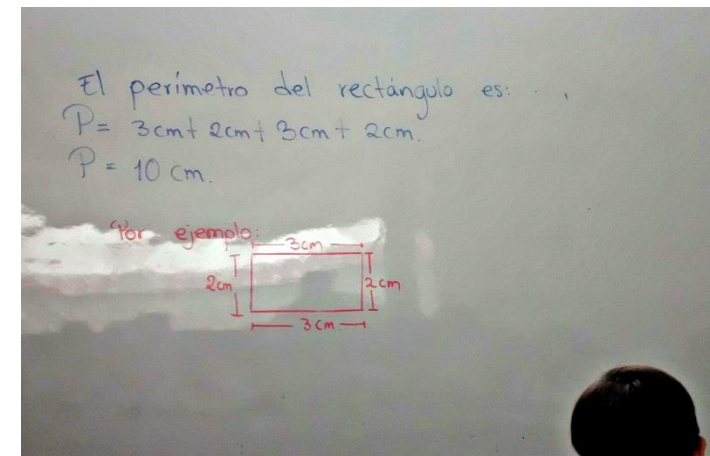 El perímetro del rectángulo es:
P= 3cm+ 2cm+ 3cm+ 2cm.
P= 10 cm.
Por ejemplo:
3cm
2cm
2cm
3cm